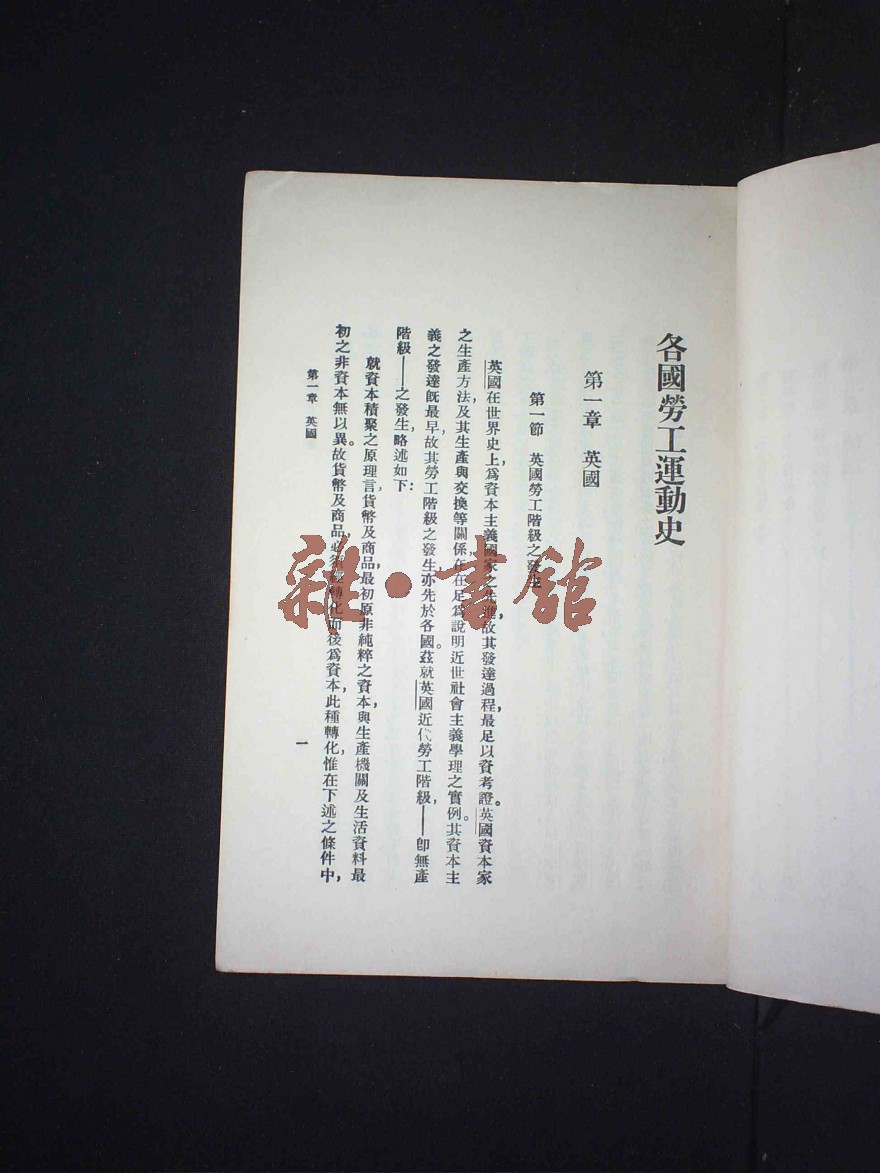 各國勞工運動史
第一章 英國
第一節 英國勞工階級之發生
英國在世界史上，爲資本主義國家之先進，故其發達過程，最足以資考證。英國資本家
之生產方法，及其生產與交換等關係，在在足爲說明近世社會主義學理之實例。其資本主
義之發達旣最早，故其勞工階級之發生，亦先於各國。茲就英國近代勞工階級，——卽無產
階級——之發生，略述如下：
就資本積聚之原理言，貨幣及商品，最初原非純粹之資本，與生產機關及生活資料最
初之非資本無以異。故貨幣及商品，必須經轉化而後爲資本，此種轉化，惟在下述之條件中，
第一章 英國
一
雜·書館